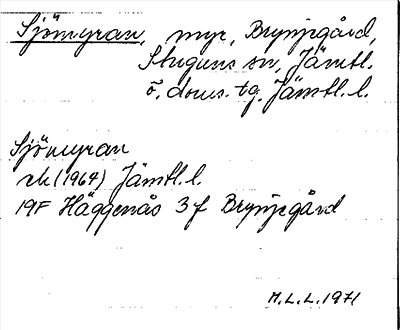 Sjömyran, myr, Brynjegård,
Stuguns sn, Jämtl.
ö. doms. tg, Jämtl. l.
Sjömyran
rk (1964) Jämtl. l.
19F Häggenås 3f Brynjegård
M.L.L. 1971